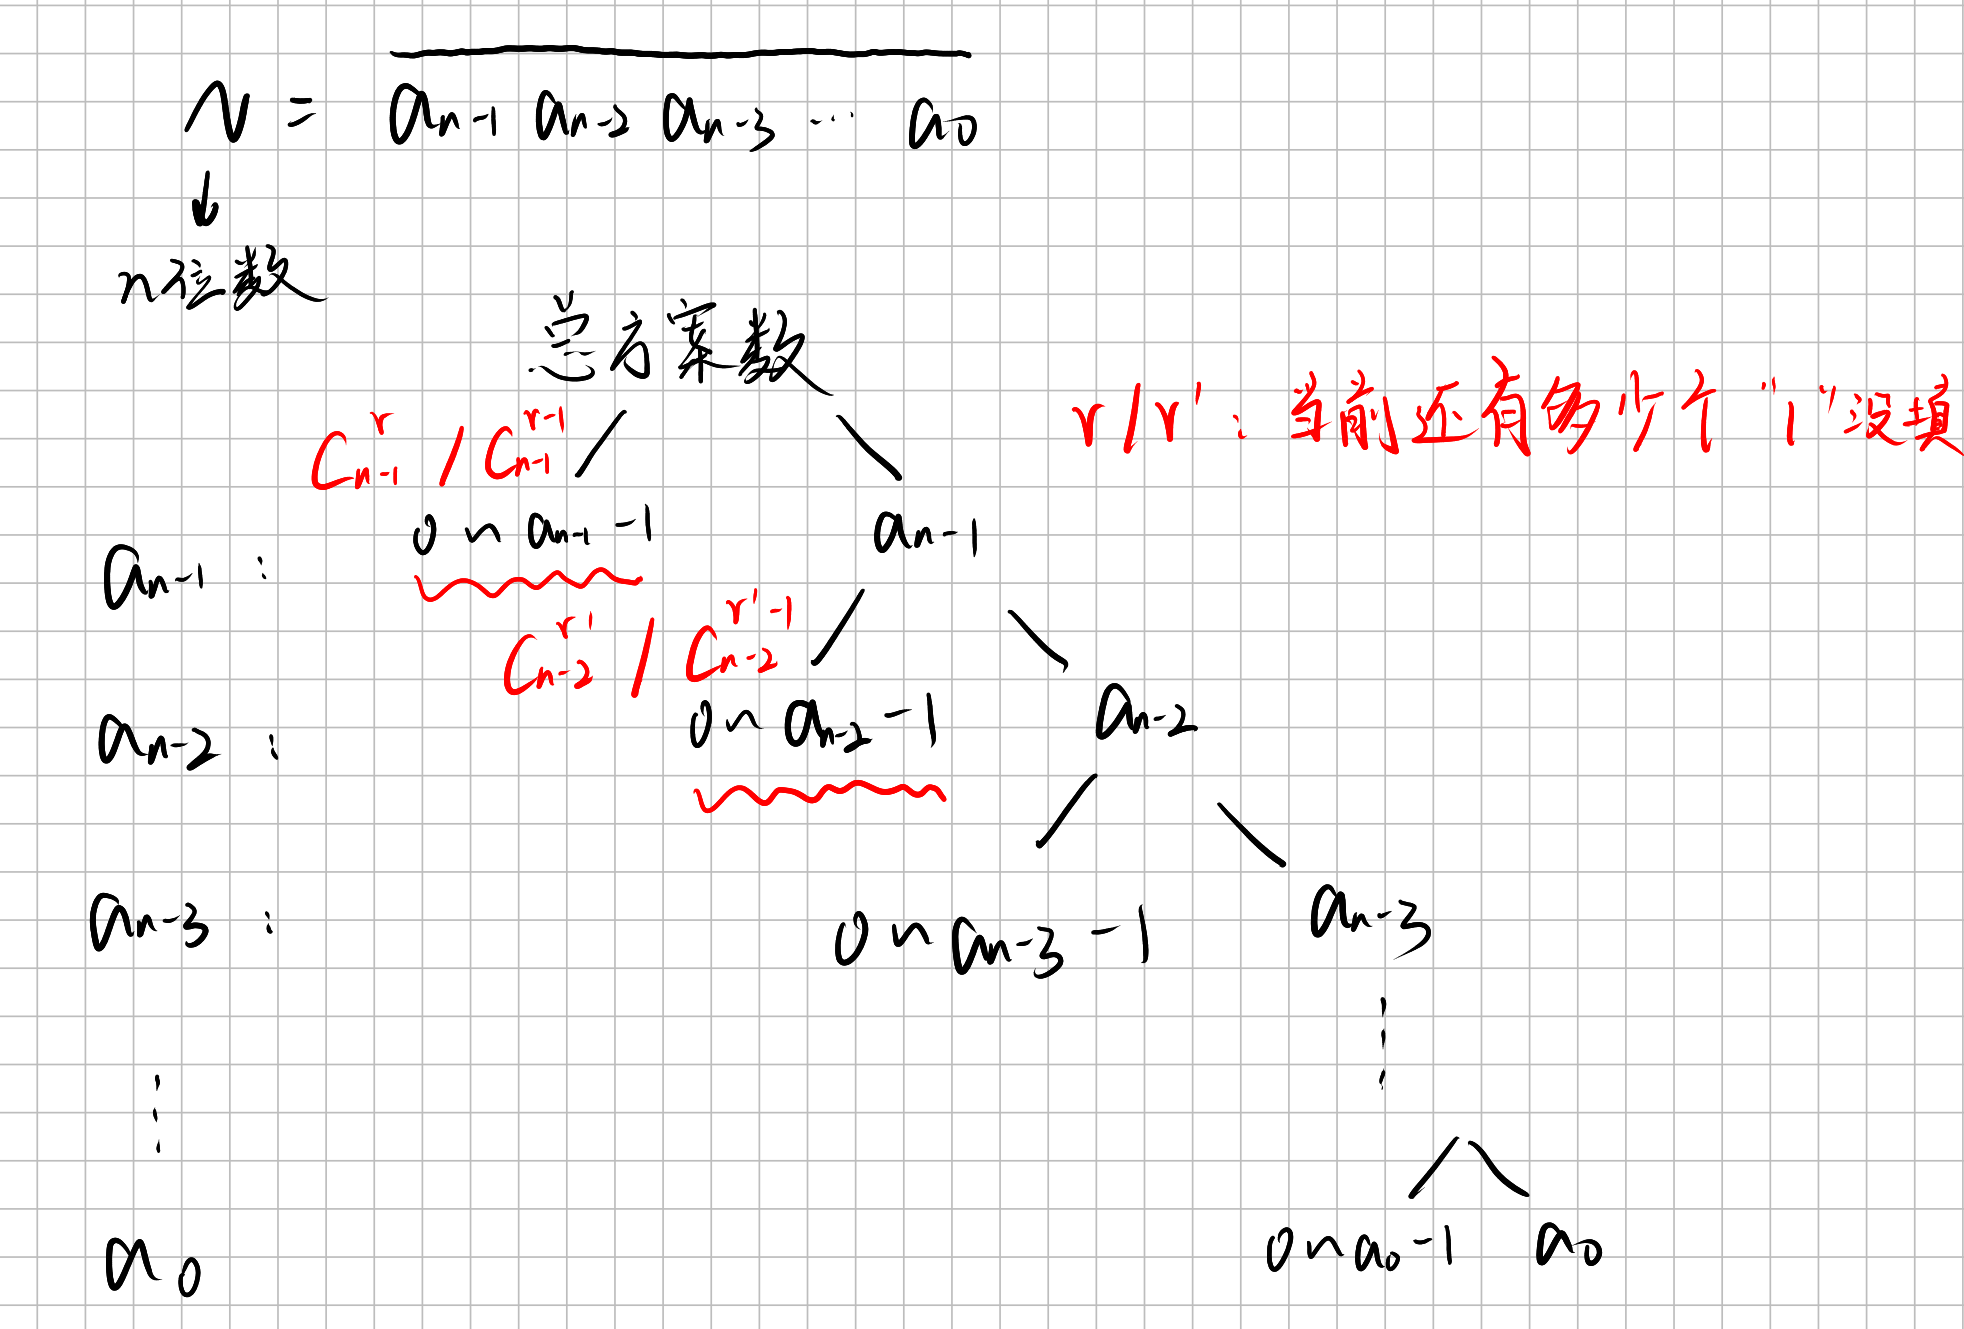 N = a_{n-1} a_{n-2} a_{n-3} … a_0
n位数
总方案数
r/r'：当前还有多少个"1"没填
C_{n-1}^{r} / C_{n-1}^{r-1}
a_{n-1}： 0~a_{n-1}-1 a_{n-1}
C_{n-2}^{r'} / C_{n-2}^{r'-1}
a_{n-2}： 0~a_{n-2}-1 a_{n-2}
a_{n-3}： 0~a_{n-3}-1 a_{n-3}
⋮ ⋮
a_0 0~a_0-1 a_0